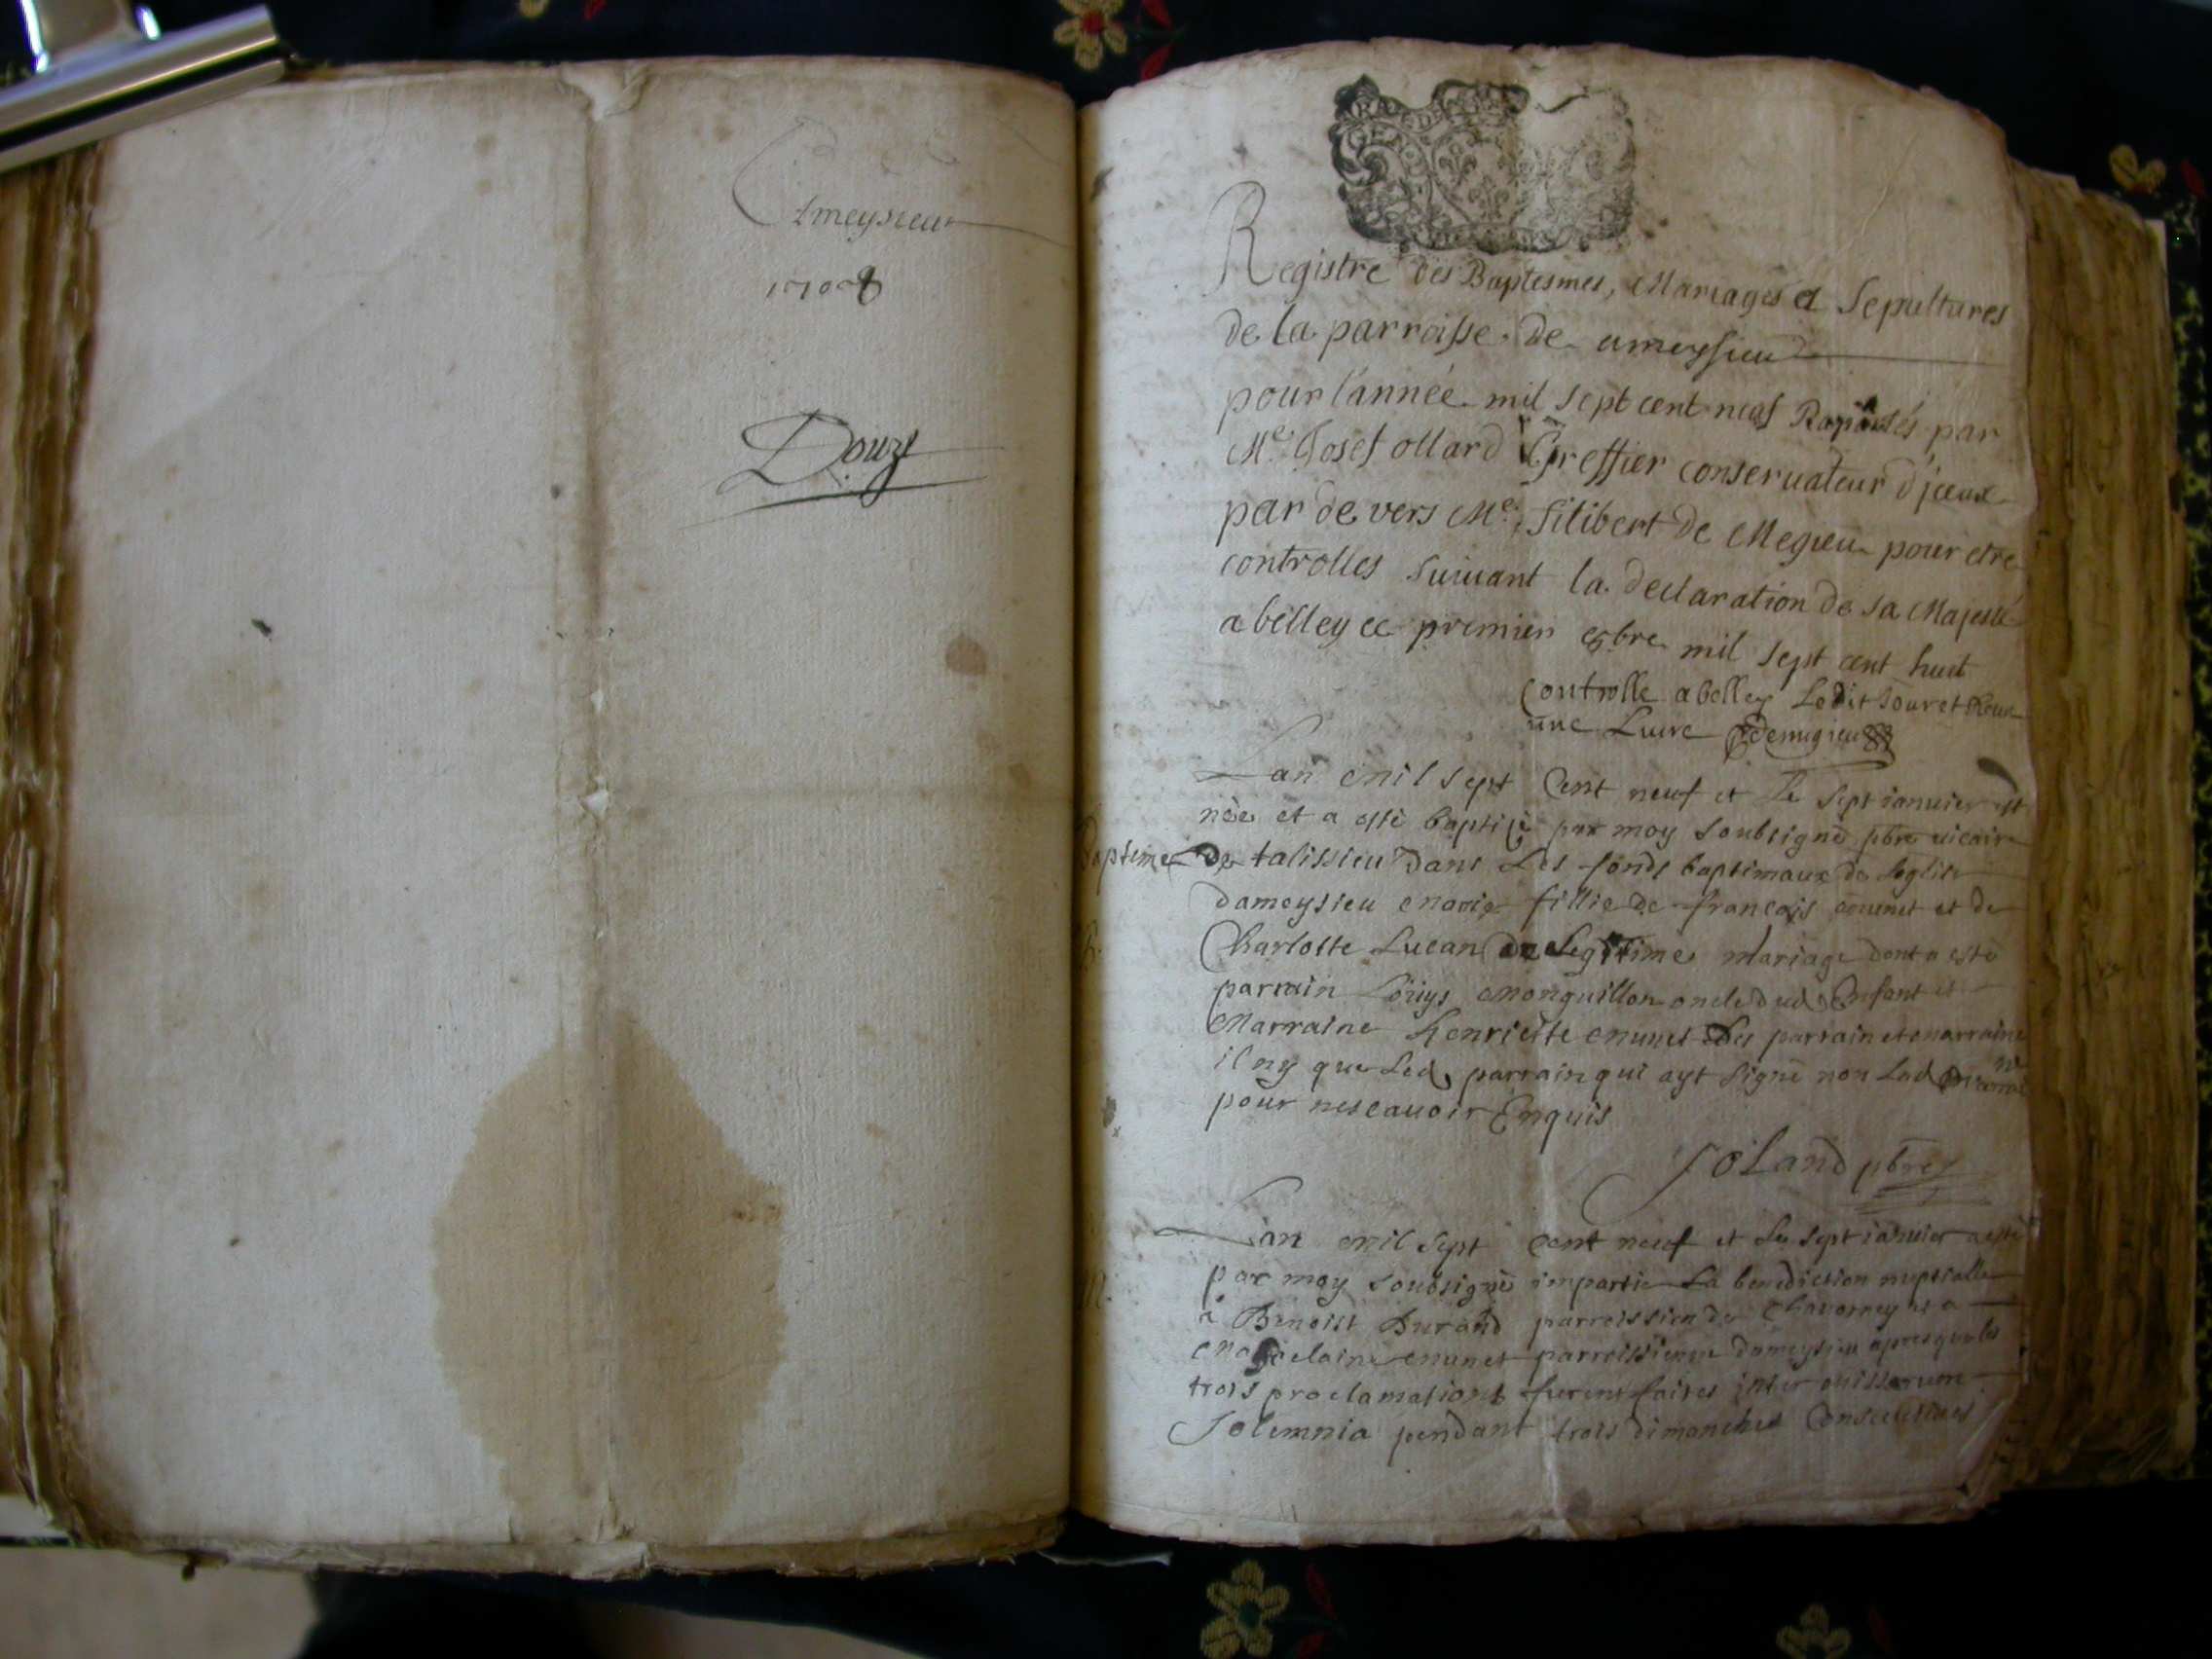 Ameysieu
1708
Douze
Registre des Baptesmes, Mariages et Sepultures
de la parroisse de ameysieu
pour l'année mil sept cent neuf par
Me Josef ollard Greffier conservateur d'iceux
par de vers Me filibert de Megieu pour etre
controlles suivant la declaration de sa Majesté
a belley ce premier mil sept cent huit
Controlle a belley Ledit Jour et
une Livre Demigieu
Lan mil sept Cent neuf et Le sept ianuier est
née et a esté baptisé par moy soubsigné pbre vicaire
Baptime de talissieu dans Les fonds baptimaux de Leglise
dameysieu marie fillie de francois et de
Charlotte Lucan de Legitime mariage dont a esté
parrain Louys monguillon oncle dud Enfant et
Marraine henriette munet Les parrain et marraine
il ny que Led parrain qui ayt signé non Lad marraine
pour ne scauoir Enquis
Joland pbre
Lan mil sept Cent neuf et Le sept ianuier a esté
par moy soubsigné impartie La benediction nuptialle
à Benoist Durand parroissien de Chavorney et a
Magdelaine munet parroissienne dameysieu apres que les
trois proclamations furent faites inter missarum
Solemnia pendant trois dimanches Consecutives